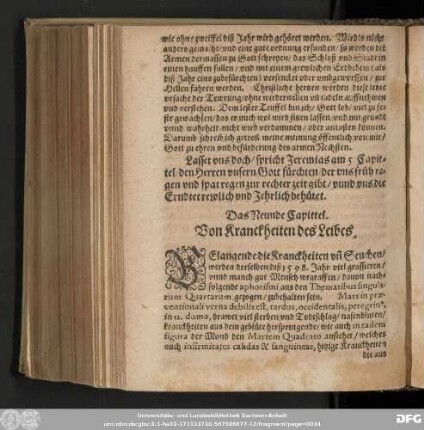 wie ohne zweiffel diß Jahr wird gehöret werden. Wird's nicht
anders gemacht/ vnd eine gut ordnung erfunden/ so werden die
Armen dermassen zu Gott schreyen/ das Schloß vnd Stadt in
einen hauffen fallen/ vnd mit einem grewlichen Erdbeben (als
diß Jahr eins zubefürchten) versencket oder vmbgeworffen/ zur
Hellen fahren werden. Christliche herzen werden diese
vrsache der Tewrung/ ohne
vnd verstehen. Dem
ste gewachsen/ das er mich wol wird sitzen lassen/ vnd mit grundt
vnnd wahrheit nicht wird verdammen/ oder antasten können.
Darumb schreib ich getrost meine meinung öffentlich von mir/
Gott zu ehren vnd befürderung des armen Nechsten.
Lasset vns doch/ spricht Jeremias am 5 Capit-
tel den Herren vnsern Gott fürchten der vns früh re-
gen vnd spat regen zur rechter zeit gibt/ vnnd vns die
Erndte trewlich vnd Jehrlich behütet.
Das Neunde Capittel.
Von Kranckheiten des Leibes.
BElangende die Kranckheiten vñ Seuchen/
werden derselben diß 1598. Jahr viel grassieren/
vnnd manch gut Mensch wegraffen/ dauon nach-
folgende aphorismi aus den Thematibus singula-
rum Quartarum gezogen/ zubehalten sein. Mars in præ-
ventionali verna debilis est, tardus, occidentalis, peregrin9,
in 12. domo, drawet viel sterben vnd Todtschlag/ nasenbluten/
kranckheiten aus dem geblüte herspringende/ wie auch in eadem
figura der Mond den Martem Quadrato ansihet/ welches
auch infirmitates calidas & sanguineas, hitzige Kranckheiten
die aus
Universitäts- und Landesbibliothek Sachsen-Anhalt
DFG